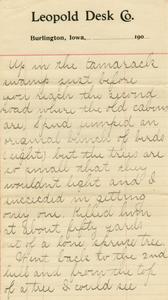 Leopold Desk Co.
Burlington, Iowa, 190
Up in the tamarack
swamp just before
you reach the second
road where the old cabins
are, I jumped an
original bunch of birds
(eight) but the trees are
so small that they
wouldn't light and I
succeeded in getting
only one. Killed him
at about fifty yards
out of a lone spruce tree.
Went back to the 2nd
hill and from the top
of a tree I could see